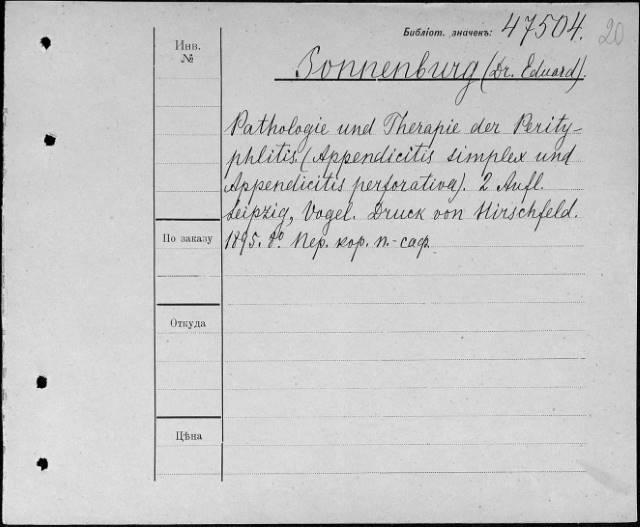 Библіот. значекъ: 47504.
20
Инв.
№
Sonnenburg (Dr. Eduard).
Pathologie und Therapie der Perity-
phlitis. (Appendicitis simplex und
Appendicitis perforativa). 2 Aufl.
Leipzig, Vogel. Druck von Hirschfeld.
По заказу
1895. 8º Пер. кор. п.-саф.
Откуда
Цѣна